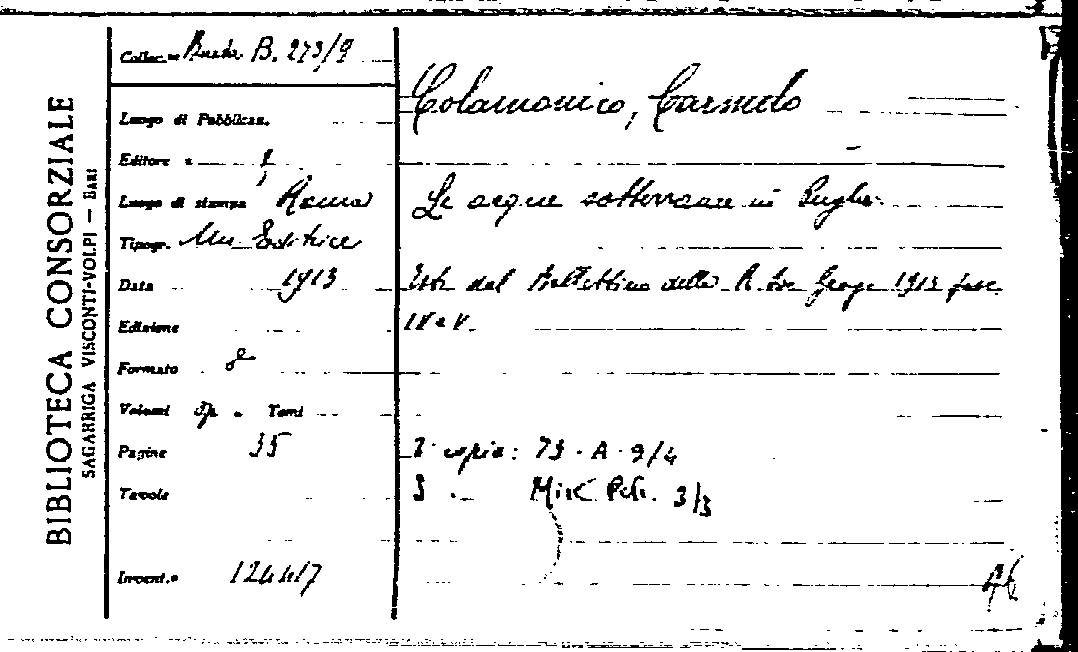 BIBLIOTECA CONSORZIALE
SAGARRIGA VISCONTI-VOLPI — BARI
Colloc.ne Busta B. 273/9
Luogo di Pubblicaz.
Editore
Luogo di stampa Roma
Tipogr. Un. Editrice
Data 1913
Edizione
Formato 8°
Volumi op. Tomi
Pagine 35
Tavole
Invent.o 124417
Colamonico, Carmelo
Le acque sotterranee in Puglia.
Estr. del Bollettino della R. Soc. Geogr. 1913 fasc.
IV e V.
2ª copia: 73 - A - 9/4
3 Misc. 3/3